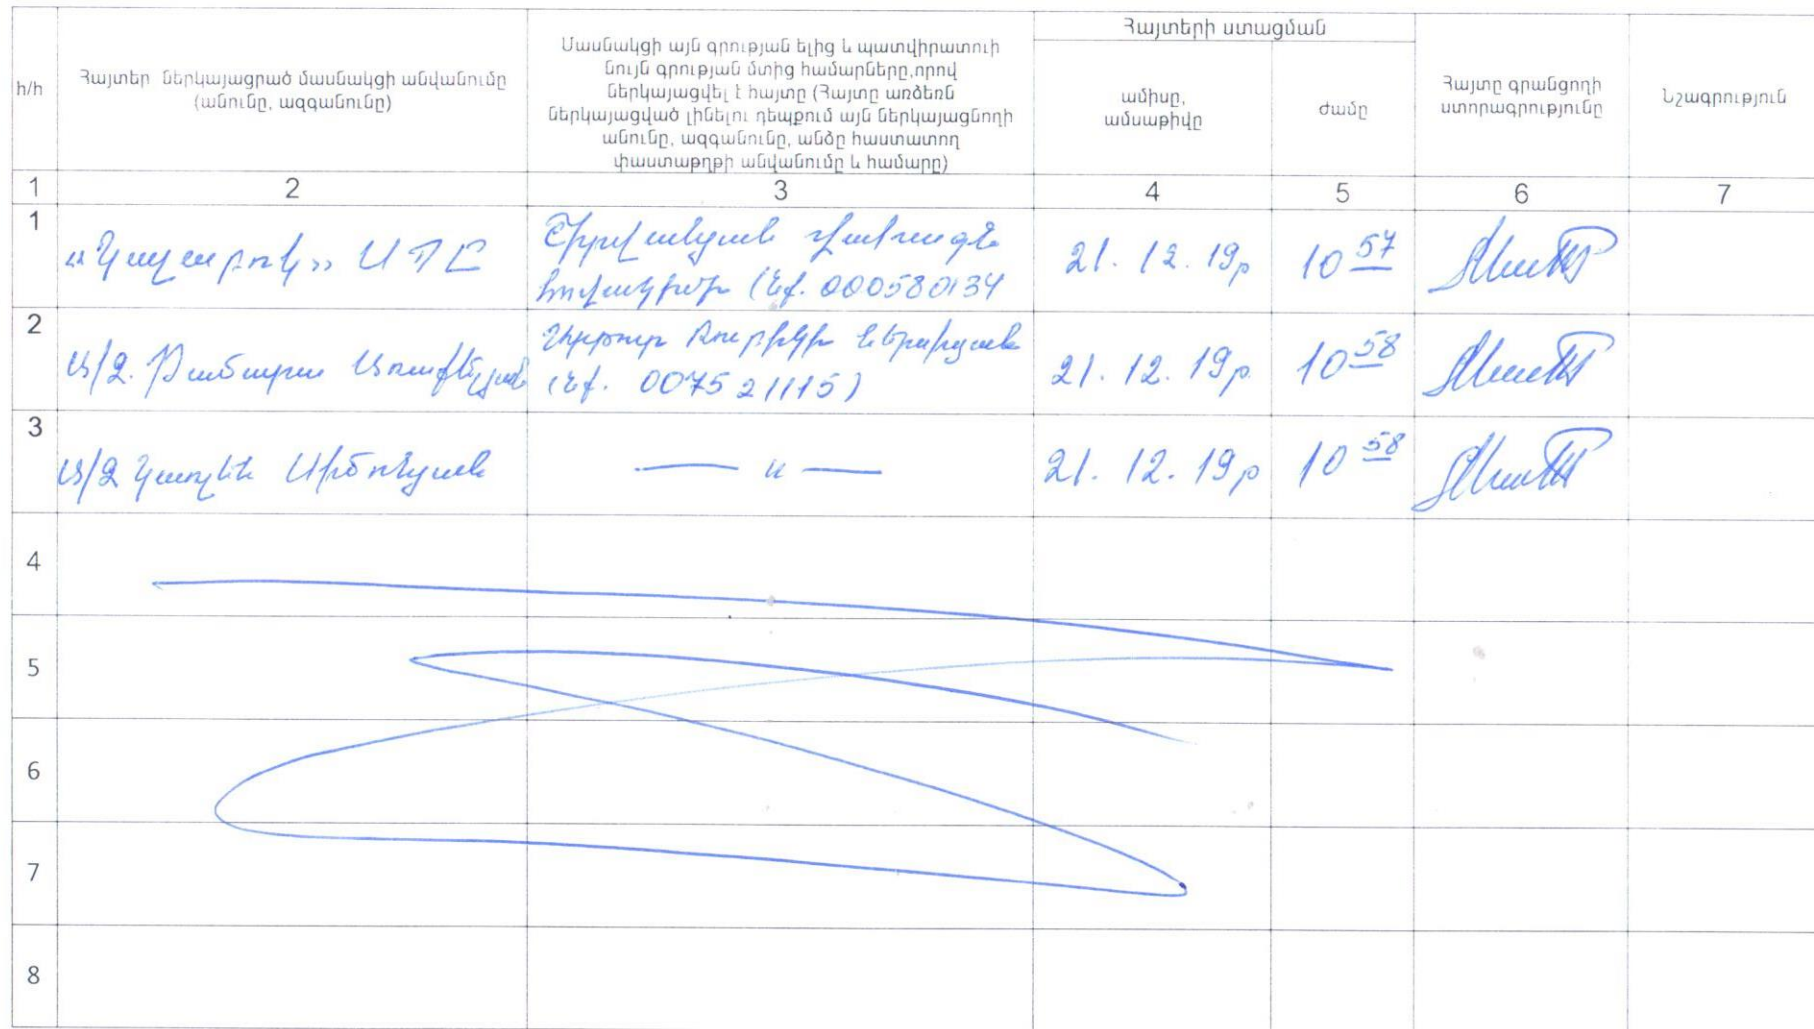 հ/հ
Հայտեր ներկայացրած մասնակցի անվանումը
(անունը, ազգանունը)
Մասնակցի այն գրության ելից և պատվիրատուի
նույն գրության մտից համարները,որով
ներկայացվել է հայտը (Հայտը առձեռն
ներկայացված լինելու դեպքում այն ներկայացնողի
անունը, ազգանունը, անձը հաստատող
փաստաթղթի անվանումը և համարը)
Հայտերի ստացման
ամիսը,
ամսաթիվը
ժամը
Հայտը գրանցողի
ստորագրությունը
Նշագրություն
1 2 3 4 5 6 7
1
ՍՊԸ
000580134
21. 12. 19թ
10 57
2
Ա/Ձ. Թամարա Առաքելյան
(նք. 007521115)
21. 12. 19թ.
10 58
3
Ա/Ձ Կարլեն Սիմոնյան
— և —
21. 12. 19թ
10 58
4
5
6
7
8